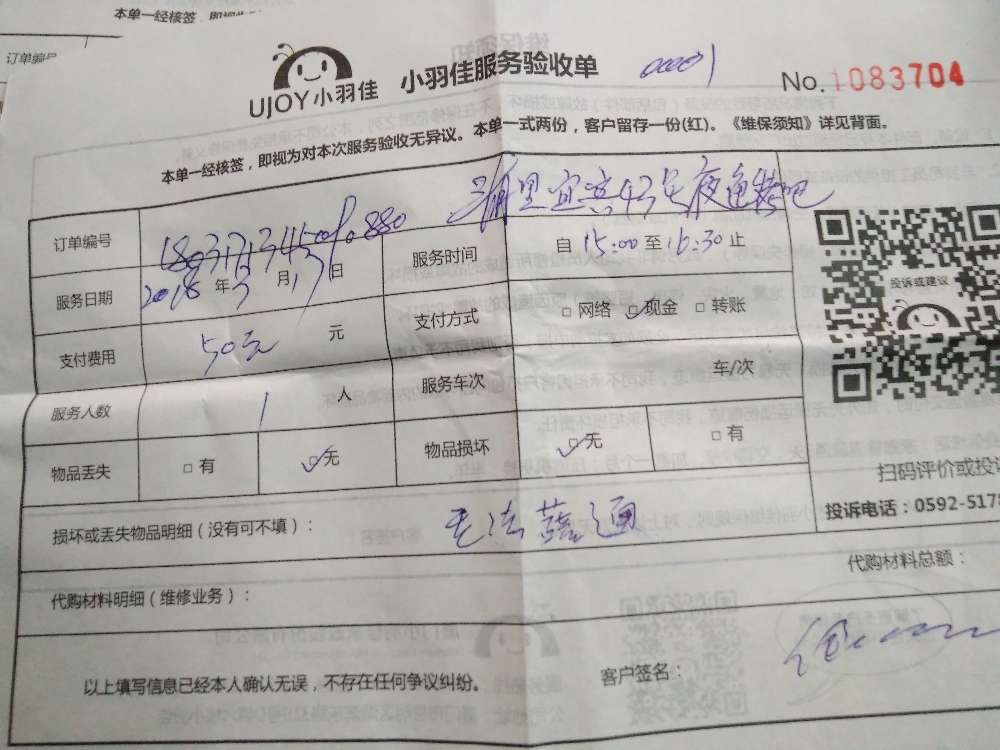 本单一经核签，即视
订单编号
UJOY小羽佳 小羽佳服务验收单 00001 No.1083704
本单一经核签，即视为对本次服务验收无异议。本单一式两份，客户留存一份(红)。《维保须知》详见背面。
订单编号 服务时间 自15:00至16:30止
服务日期 2018年3月17日
支付费用 50元 元 支付方式 □网络 ☑现金 □转账
服务人数 1 人 服务车次 车/次
物品丢失 □有 ☑无 物品损坏 ☑无 □有
投诉或建议
扫码评价或投诉
投诉电话：0592-5178
损坏或丢失物品明细（没有可不填）：
代购材料明细（维修业务）：
代购材料总额：
以上填写信息已经本人确认无误，不存在任何争议纠纷。
客户签名：